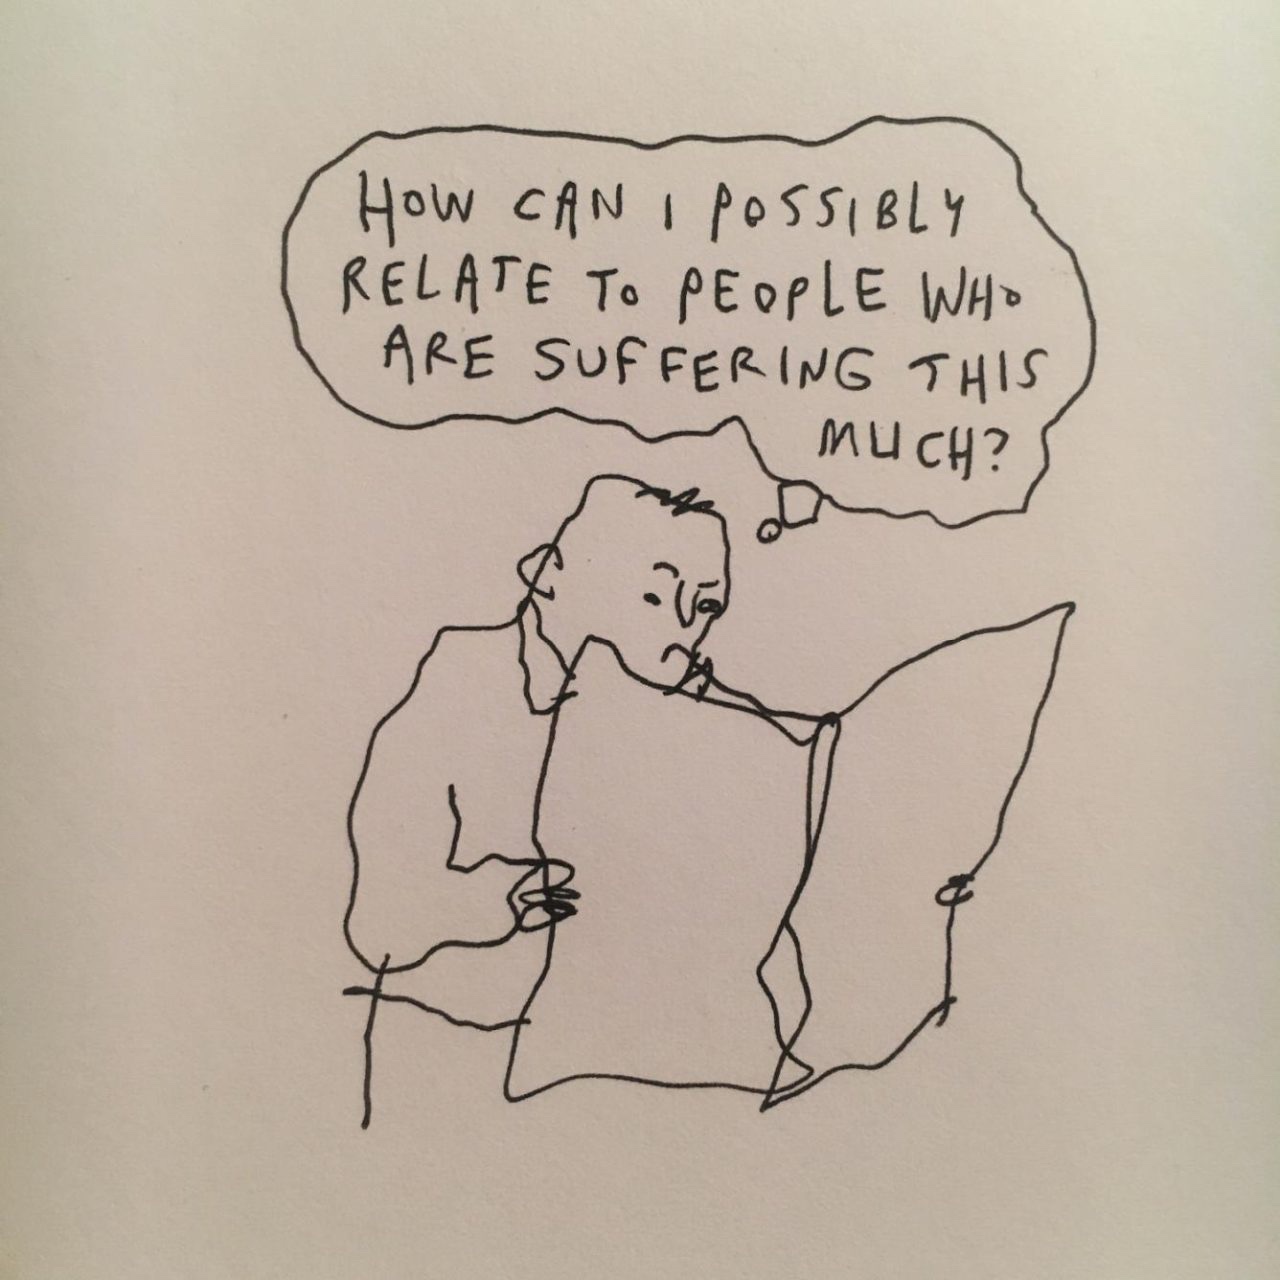 HOW CAN I POSSIBLY
RELATE TO PEOPLE WHO
ARE SUFFERING THIS
MUCH?